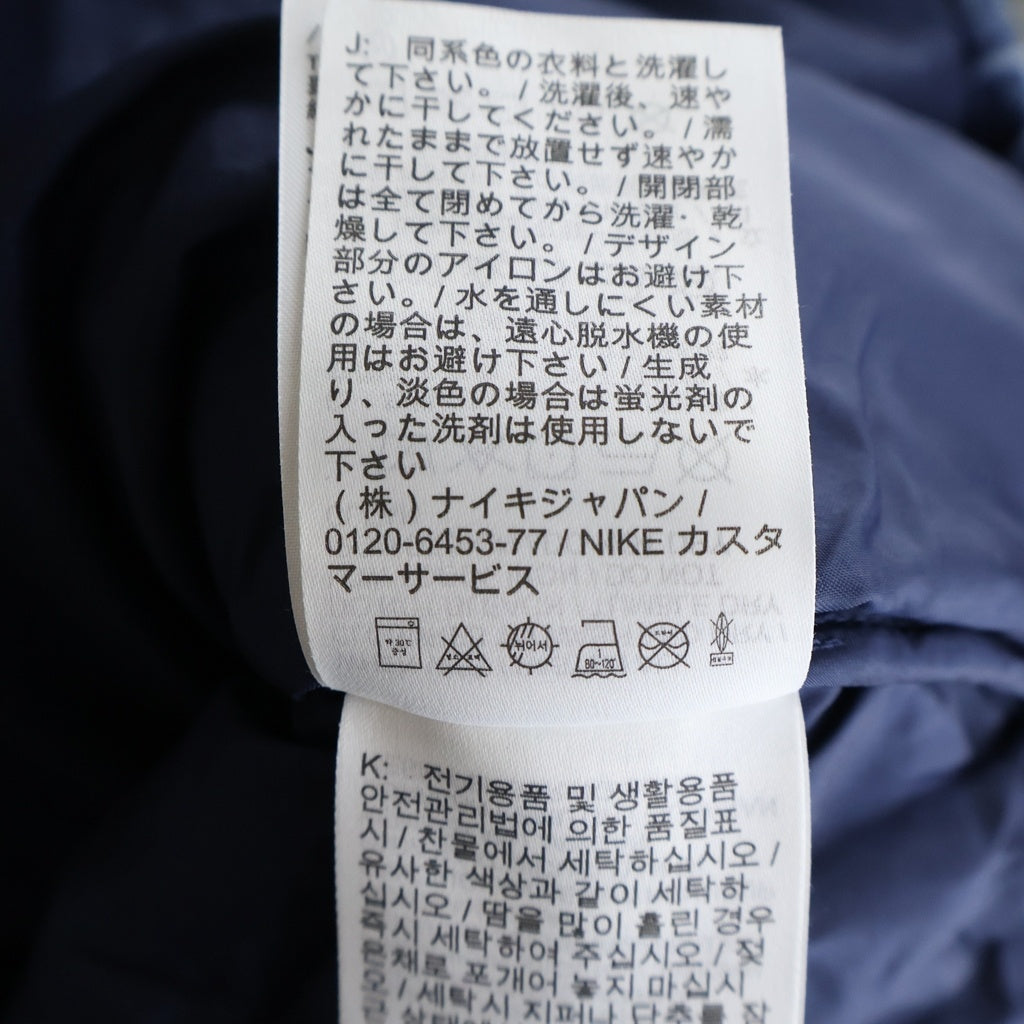 J: 同系色の衣料と洗濯し
て下さい。/ 洗濯後、速や
かに干してください。 / 濡
れたままで放置せず速やか
に干して下さい。 / 開閉部
は全て閉めてから洗濯・乾
燥して下さい。 / デザイン
部分のアイロンはお避け下
さい。/ 水を通しにくい素材
の場合は、遠心脱水機の使
用はお避け下さい / 生成
り、淡色の場合は蛍光剤の
入った洗剤は使用しないで
下さい
(株) ナイキジャパン /
0120-6453-77 / NIKE カスタ
マーサービス
약 30℃
중성
뉘어서
1
80~120˚
K: 전기용품 및 생활용품
안전관리법에 의한 품질표
시 / 찬물에서 세탁하십시오 /
유사한 색상과 같이 세탁하
십시오 / 땀을 많이 흘린 경우
즉시 세탁하여 주십시오 / 젖
은 채로 포개어 놓지 마십시
오 / 세탁시 지퍼나 단추를 잠